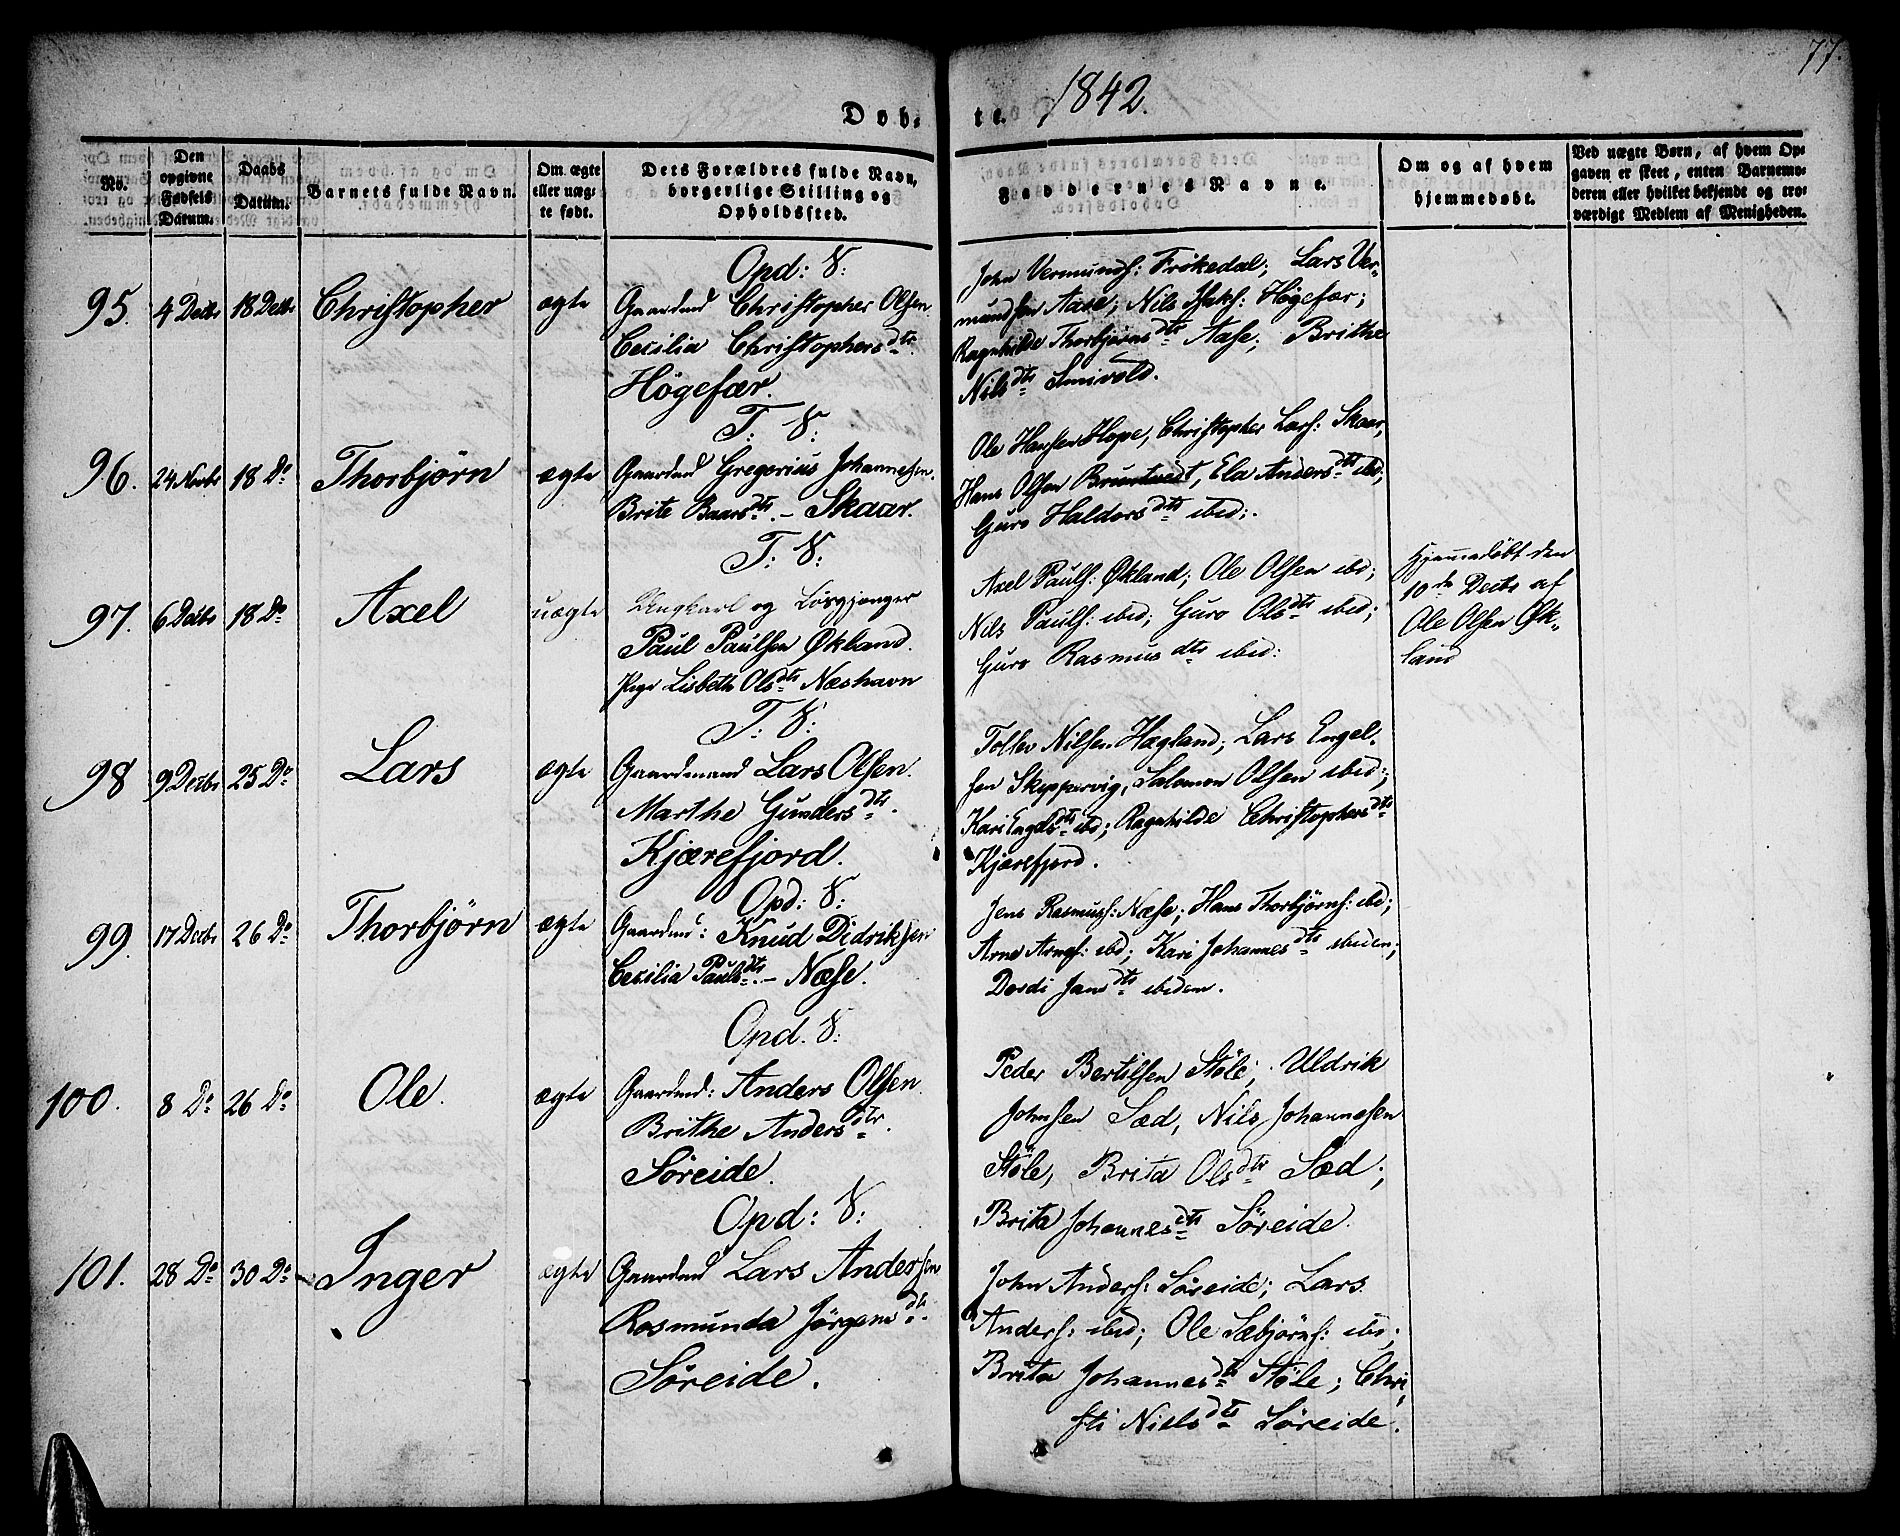 77.
Døb- te. 1842.
No.
Den opgivne Fødsels Datum.
Daabs Datum.
Barnets fulde Navn.
Om ægte eller uægte født.
Dets Forældres fulde Navn, borgerlige Stilling og Opholdssted.
Faddernes Navne.
Om og af hvem hjemmedøbt.
Ved uægte Børn, af hvem Opgaven er skeet, enten Barnemoderen eller hvilket bekjendt og troværdigt Medlem af Menigheden.
95. 4 Decbr 18 Decbr Christopher ægte
Opd: V:
Gaardmd Christopher Olsen
Cecilia Christophersdtr.
Høgefær.
John Vermunds: Frøkedal; Lars Ver-
mundsen Aase; Nils Isaks: Høgefær;
Ragnhilde Thorbjørnsdtr Aase; Brithe
Nilsdtr Smivold.
96. 24 Novbr 18 Do Thorbjørn ægte
T: V:
Gaardmd Gregorius Johannesen.
Brite Baarsdtr. - Skaar.
Ole Hansen Hope, Christopher Lars: Skaar,
Hans Olsen Bruntvedt, Ela Andersdtr ibid;
Guro Haldorsdtr ibid:.
97. 6 Decbr 18 Do Axel uægte
T: V:
Ungkarl og Løsgjænger
Paul Paulsen Økland.
Pige Lisbeth Olsdtr Næshavn
Axel Pauls: Økland; Ole Olsen ibd;
Nils Pauls: ibid; Guro Olsdtr ibid;
Guro Rasmusdtr ibid:
Hjemmedøbt den
10de Decbr af
Ole Olsen Øk-
land
98 9 Decbr 25 Do Lars ægte
T: V:
Gaardmand Lars Olsen.
Marthe Gundersdtr.
Kjærefjord.
Tollev Nilsen Hægland; Lars Engel-
sen Skyppervig, Salomon Olsen ibid;
Kari Engelsdtr ibd; Ragnhilde Christophersdtr
Kjærefjord.
99. 17 Decbr 26 Do Thorbjørn ægte
Opd: V:
Gaardmd: Knud Didriksen
Cecilia Paulsdtr. - Næse.
Jens Rasmuss: Næse; Hans Thorbjørns: ibd;
Arne Arnes: ibd; Kari Johannesdtr ibidem;
Dordi Jansdtr ibidem.
100. 8 Do 26 Do Ole. ægte
Opd. V:
Gaardmd: Anders Olsen.
Brithe Andersdtr.
Søreide.
Peder Bertilsen Støle; Uldrik
Johnsen Sæd, Nils Johannesen
Støle, Brita Olsdtr Sæd;
Brita Johannesdtr Søreide.
101. 28 Do 30 Do Inger ægte
Opd: V:
Gaardmd Lars Andersen
Rosmunda Jørgensdtr.
Søreide.
John Anders: Søreide; Lars
Anders: ibid; Ole Sæbjørns: ibid;
Brita Johannesdtr Støle; Chri-
sti Nielsdtr Søreide.